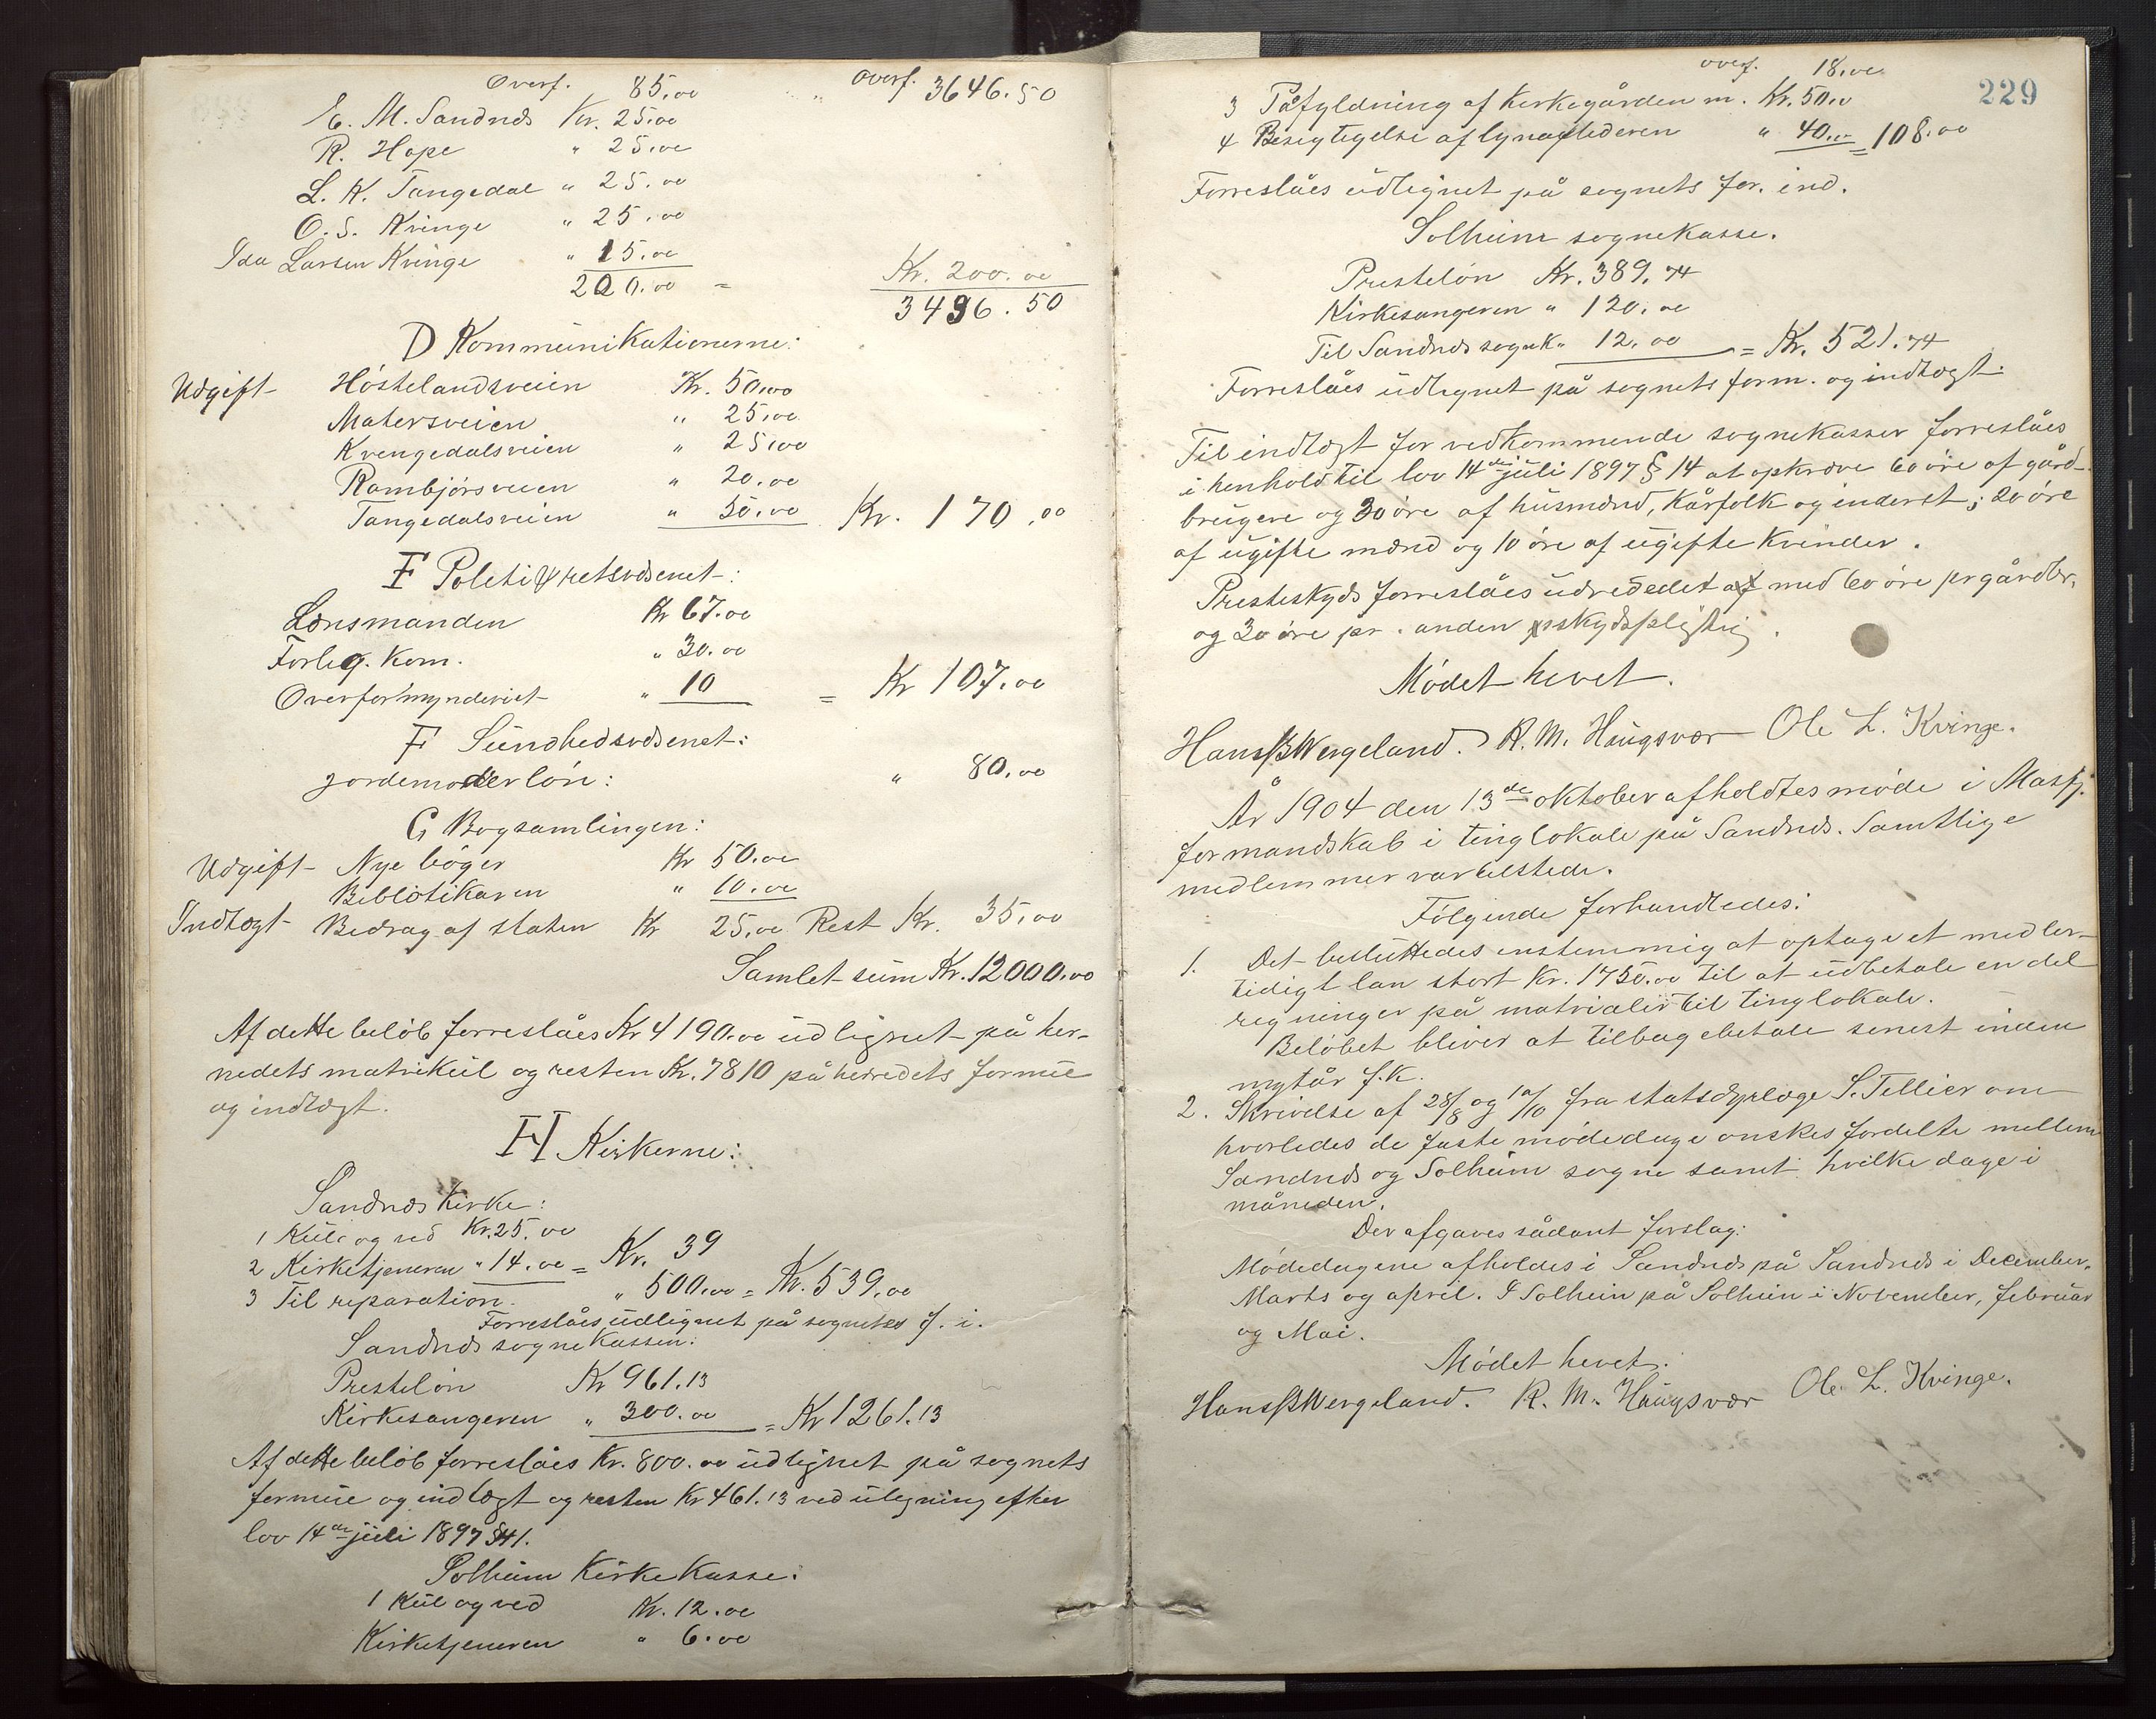 Overf. 85.00 " Overf. 3646.50
E. M. Sandnæs Kr. 25.00
R. Hope " 25.00
L. K. Tangedal " 25.00
O. S. Kvinge " 25.00
Ida Larsen Kvinge " 15.00 Kr. 200.00
200.00 = 3496.50
D Kommunikationerne:
Udgift Höstelandsveien Kr. 50.00
Matersveien " 25.00
Krengedalsveien " 25.00
Rambjörsveien " 20.00
Tangedalsveien " 50.00 Kr. 170.00
F Politi & retsvæsenet:
Lensmanden Kr 67.00
Forlig. Kom. " 30.00
Overformynderiet " 10 = Kr 107.00
F Sundhedsvæsenet:
jordemoderlön: " 80.00
G Bogsamlingen:
Udgift Nye böger Kr 50.00
Bibliotikaren " 10.00
Indtægt Bedrag af staten Kr 25.00 Rest Kr. 35.00
Samlet sum Kr. 12000.00
Af dette belöb forreslåes Kr 4190.00 udlignet på her-
redets matrikul og resten Kr. 7810 på herredets formue
og indtægt.
H Kirkerne:
Sandnæs Kirke:
1 Kul og ved Kr. 25.00
2 Kirketjeneren " 14.00 = Kr. 39
3 Til reparation. " 500.00 = Kr. 539.00
Forreslåes udlignet på sognets f. i.
Sandnæs sognekassen:
Prestelön Kr 961.13
Kirkesangeren " 300.00 = Kr 1261.13
Af dette belöb forreslåes Kr. 800.00 udlignet på sognets
formue og indtægt og resten Kr 461.13 ved uligning efter
lov 14de juli 1897 § 41.
Solheim Kirkekasse:
1 Kul og ved Kr. 12.00
Kirketjeneren " 6.00
229
overf. 18.00
3 Påfyldning af Kirkegården m. Kr. 50.00
4 Besigtigelse af lynaflederen " 40.00 = 108.00
Forreslåes udlignet på sognets for. ind.
Solheim sognekasse.
Prestelön Kr. 389.74
Kirkesangeren " 120.00
Til Sandnæs sognek. " 12.00 = Kr. 521.74
Forreslåes udlignet på sognets form. og indtægt.
Til indtægt for vedkommende sognekasser forreslåes
i henhold til lov 14de juli 1897 § 14 at opkræve 60 öre af gård-
brugere og 30 öre af husmænd, Kårfolk og inderst; 20 öre
af ugifte mænd og 10 öre af ugifte Kvinder.
Presteskyds forreslåes udrededet af med 60 öre pr gårdbr.
og 30 öre pr. anden skydspligtig.
Mödet hevet.
Hans B Wergeland. R. M. Haugsvær Ole L. Kvinge.
År 1904 den 13de oktober afholdtes möde i Masfj.
formandskab i tinglokale på Sandnæs. Samtlige
medlemmer var tilstede.
Fölgende forhandledes:
1. Det besluttedes enstemmig at optage et midler-
tidigt lan stort Kr. 1750.00 til at udbetale en del
regninger på matrialer til tinglokale.
Belöbet bliver at tilbagebetale senest inden
nytår f. K.
2. Skrivelse af 28/8 og 10/10 fra statsdyrlæge S. Tellier om
hvorledes de faste mödedage onskes fordelte mellem
Sandnæs og Solheim sogne samt hvilke dage i
måneden.
Der afgaves sådant forslag:
Mödedagene afholdes i Sandnæs på Sandnæs i December,
Marts og april. I Solheim på Solheim i November, februar
og Mai.
Mödet hevet.
Hans B Wergeland. R. M. Haugsvær Ole L. Kvinge.